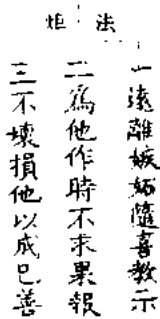 法炬
一遠離嫉妬隨喜教示
二爲他作時不求果報
三不壞損他以成己善